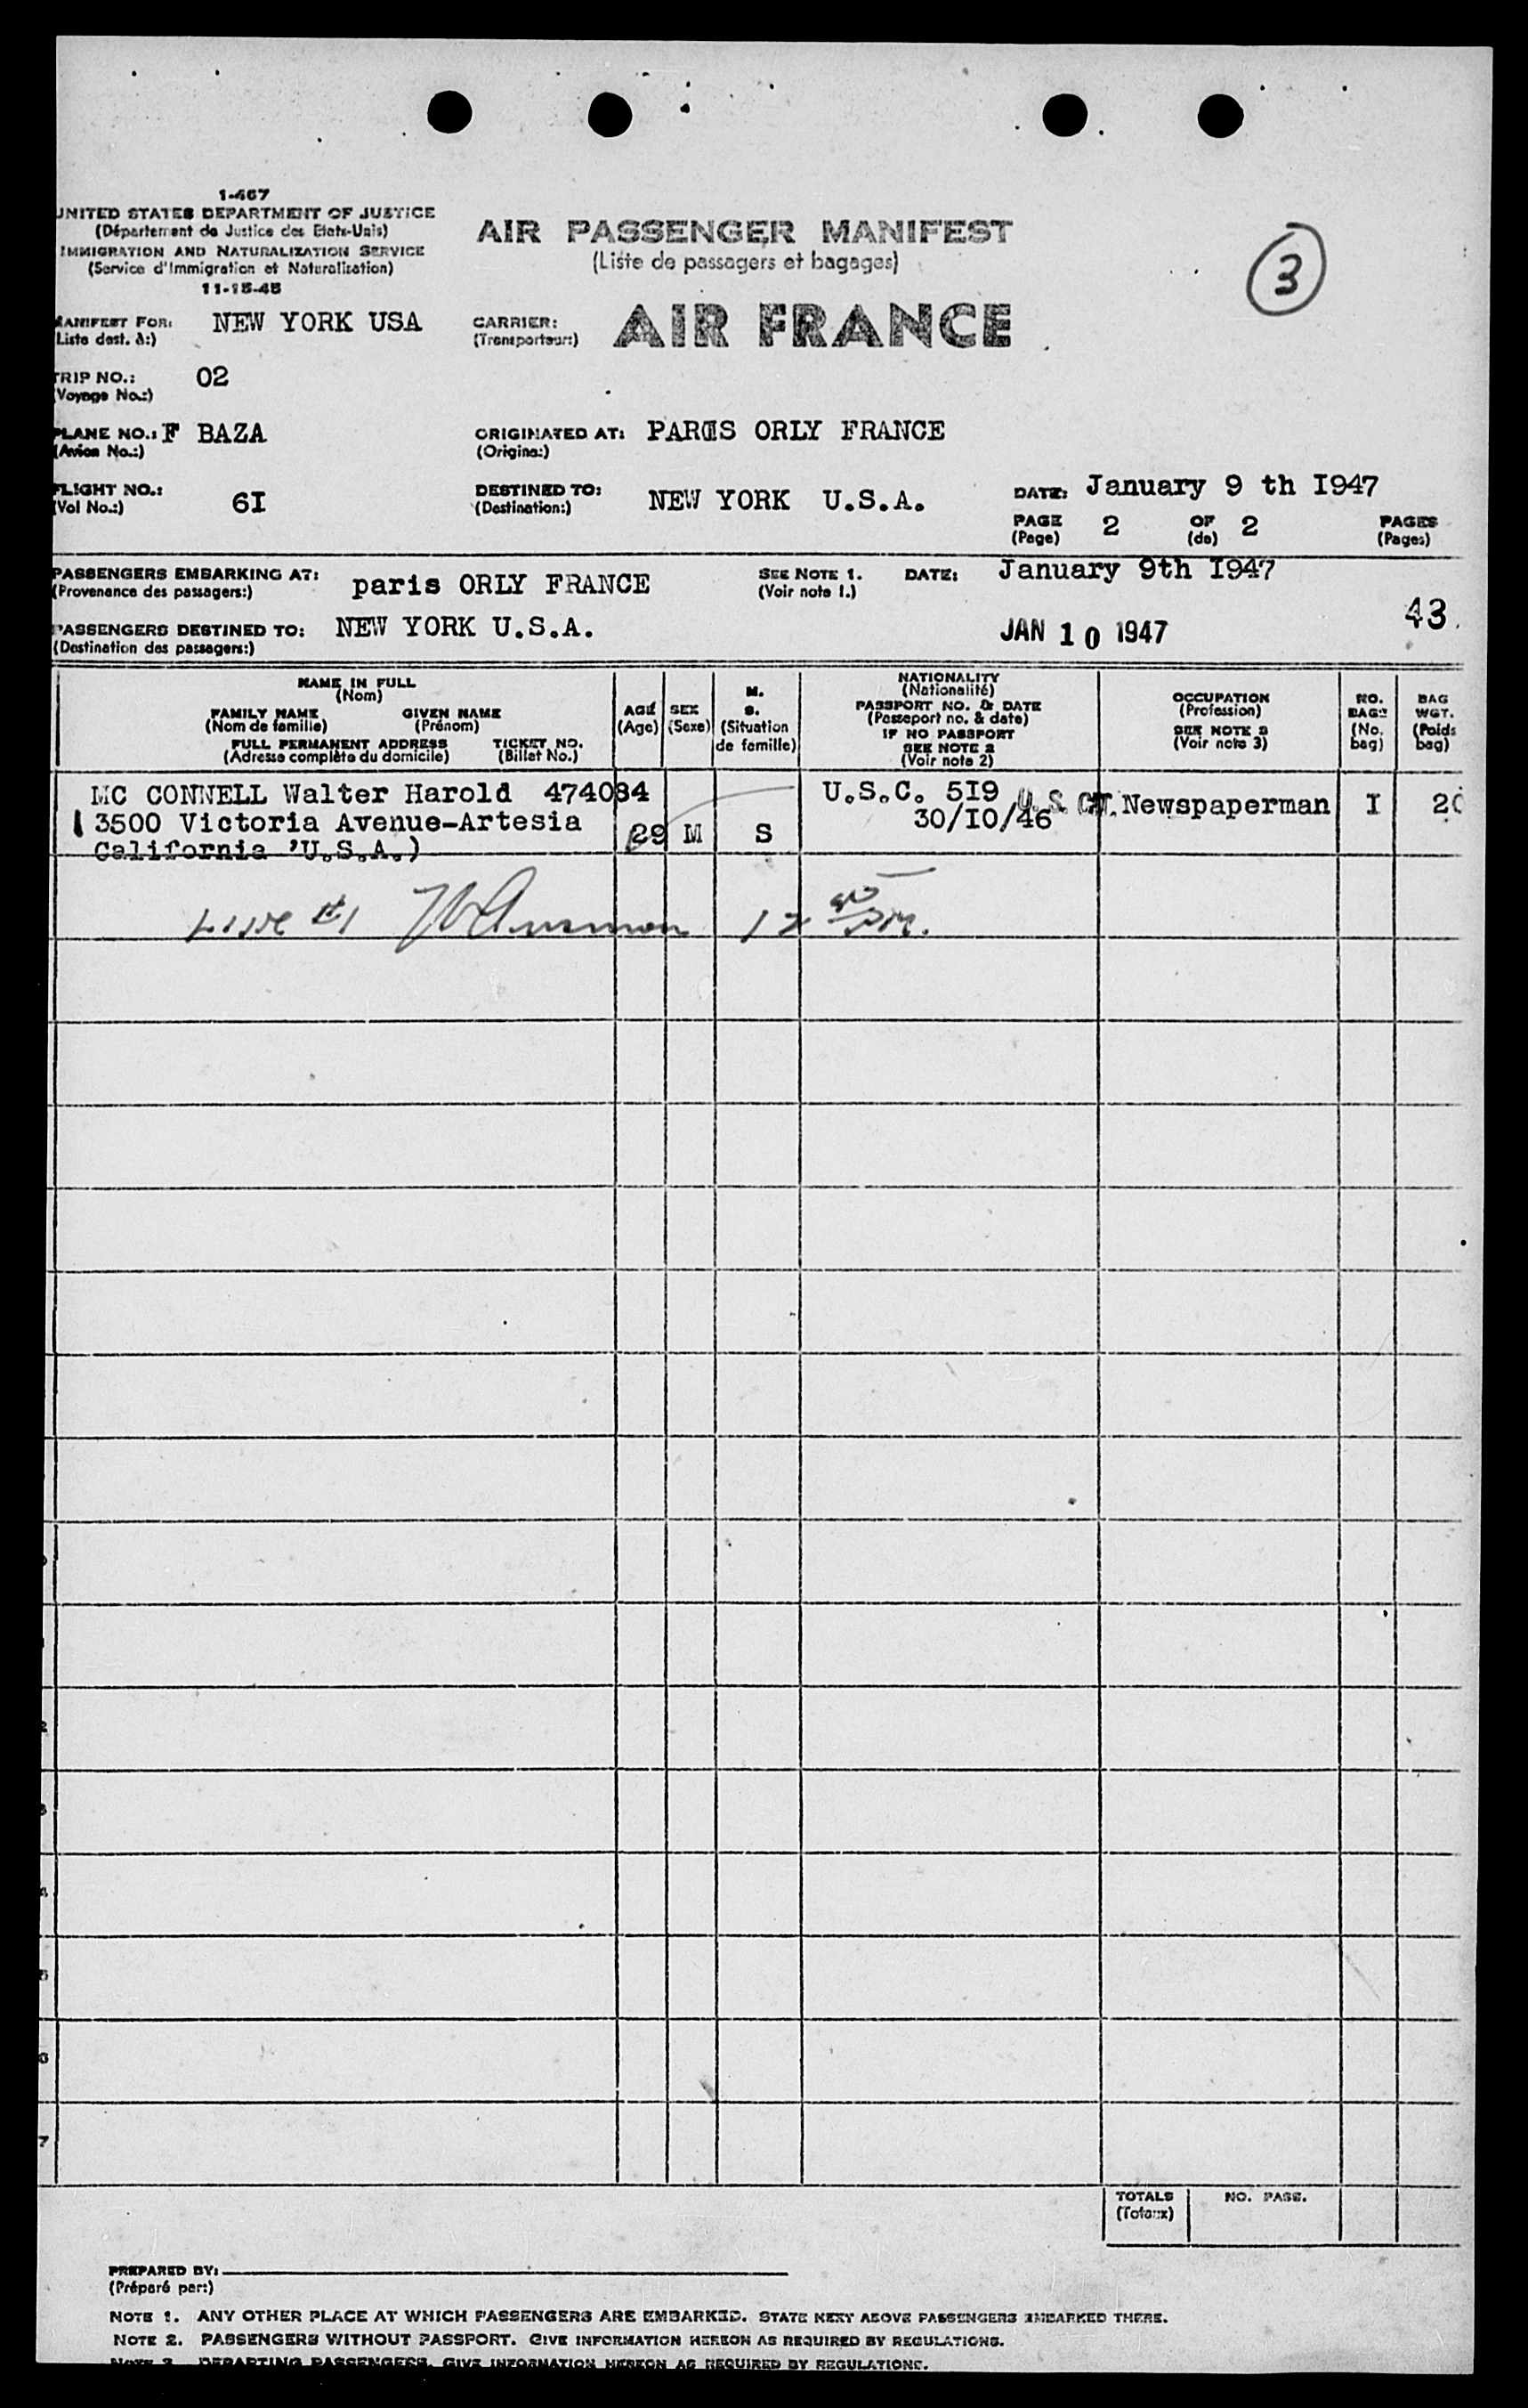 1-467
UNITED STATES DEPARTMENT OF JUSTICE
(Département de Justice des Etats-Unis)
IMMIGRATION AND NATURALIZATION SERVICE
(Service d'Immigration et Naturalisation)
11-15-45
AIR PASSENGER MANIFEST
(Liste de passagers et bagages)
3
MANIFEST FOR: NEW YORK USA
(Liste dest. à:)
CARRIER: AIR FRANCE
(Transporteur:)
TRIP NO.: 02
(Voyage No.:)
PLANE NO.: F BAZA
(Avion No.:)
ORIGINATED AT: PARIS ORLY FRANCE
(Origine:)
FLIGHT NO.: 6I
(Vol No.:)
DESTINED TO: NEW YORK U.S.A.
(Destination:)
DATE: January 9 th I947
PAGE 2 OF 2 PAGES
(Page) (de) (Pages)
PASSENGERS EMBARKING AT: paris ORLY FRANCE
(Provenance des passagers:)
SEE NOTE 1. DATE: January 9th I947
(Voir note 1.)
43.
PASSENGERS DESTINED TO: NEW YORK U.S.A.
(Destination des passagers:)
JAN 10 1947
NAME IN FULL
(Nom)
FAMILY NAME GIVEN NAME
(Nom de famille) (Prénom)
FULL PERMANENT ADDRESS TICKET NO.
(Adresse complète du domicile) (Billet No.)
AGE
(Age)
SEX
(Sexe)
M.
S.
(Situation
de famille)
NATIONALITY
(Nationalité)
PASSPORT NO. & DATE
(Passeport no. & date)
IF NO PASSPORT
SEE NOTE 2
(Voir note 2)
OCCUPATION
(Profession)
SEE NOTE 3
(Voir note 3)
NO.
BAGS
(No.
bag)
BAG
WGT.
(Poids
bag)
MC CONNELL Walter Harold 474084
1 3500 Victoria Avenue-Artesia
California 'U.S.A.)
29 M S
U.S.C. 5I9
30/IO/46
U.S. CIT.
Newspaperman I 20
Line #1
12
TOTALS NO. PASS.
(Totaux)
PREPARED BY:
(Préparé par:)
NOTE 1. ANY OTHER PLACE AT WHICH PASSENGERS ARE EMBARKED. STATE NEXT ABOVE PASSENGERS EMBARKED THERE.
NOTE 2. PASSENGERS WITHOUT PASSPORT. GIVE INFORMATION HEREON AS REQUIRED BY REGULATIONS.
NOTE 3. DEPARTING PASSENGERS. GIVE INFORMATION HEREON AS REQUIRED BY REGULATIONS.